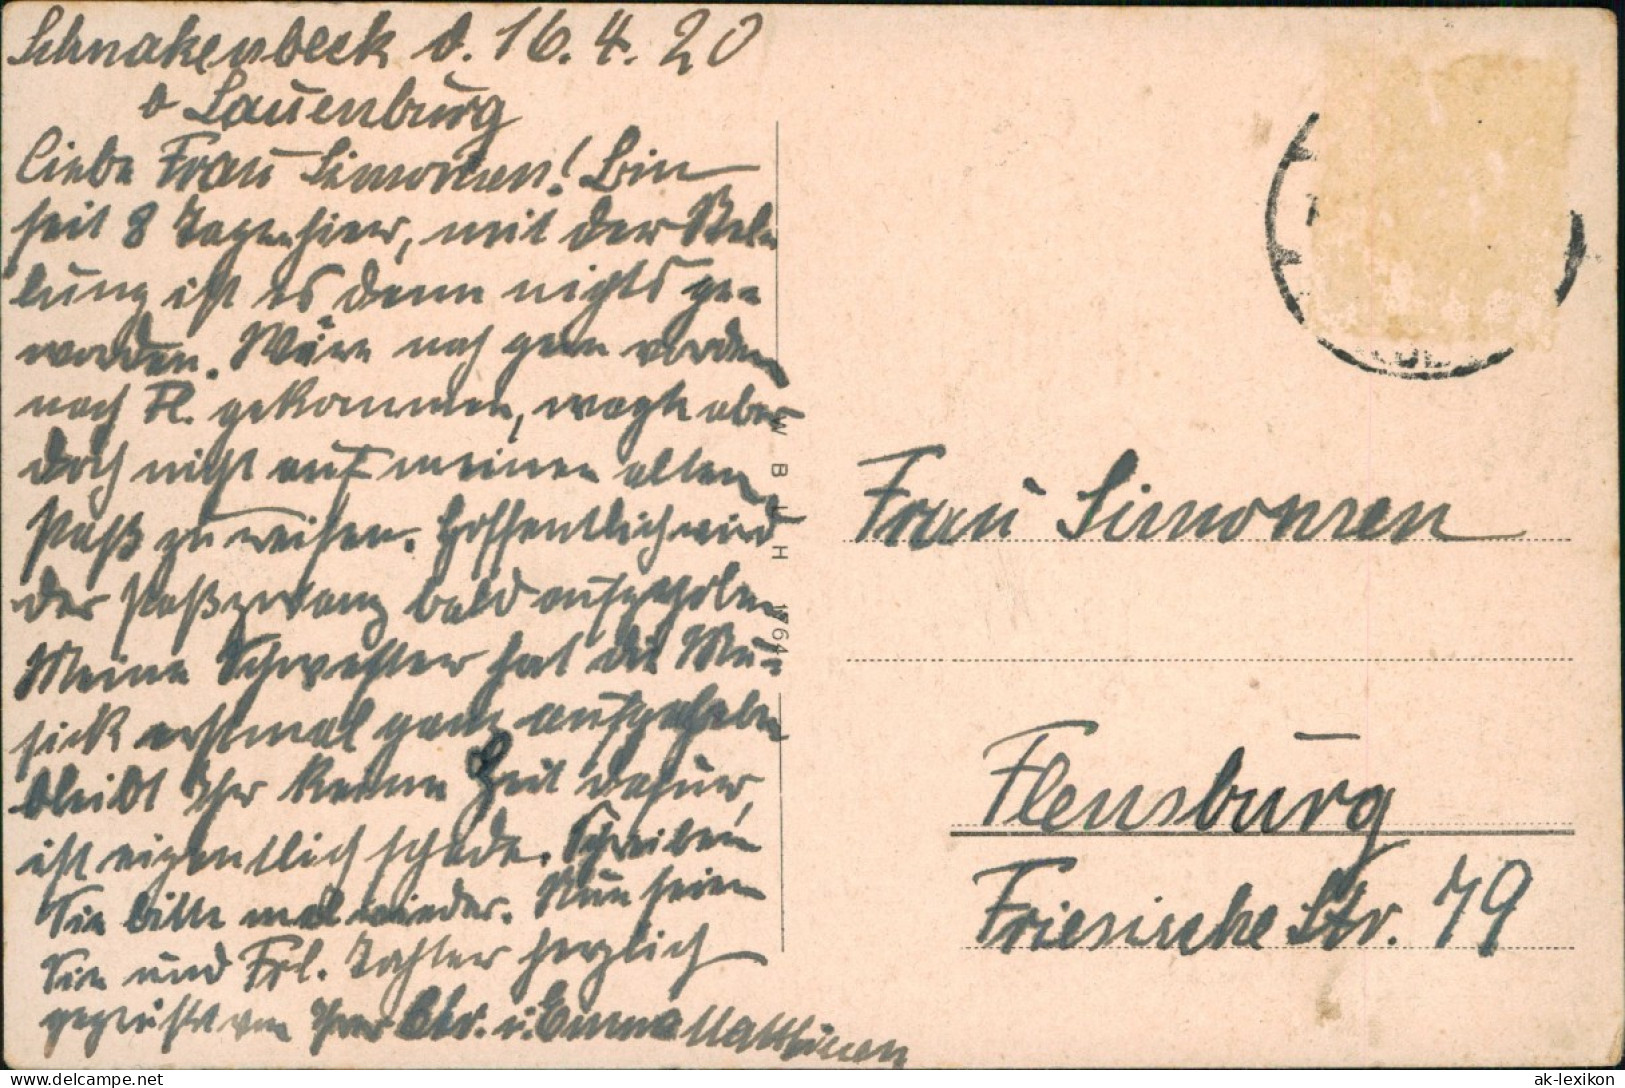 Schnakenbeck d. 16.4.20
b Lauenburg
Liebe Frau Simonsen! Bin
seit 8 Tagen hier, mit der Stel-
lung ist es denn nichts ge-
worden. Wäre noch gern vordem
nach Fl. gekommen, wagte aber
doch nicht auf meinen alten
Paß zu reisen. Hoffentlich wird
der Paßzwang bald aufgehoben
Meine Schwester hat die Mu-
sick erstmal ganz aufgegeben
bleibt Ihr keine Zeit dafür,
ist eigentlich schade. Schreiben
Sie bitte mal wieder. Nun seien
Sie und Frl. Tochter herzlich
gegrüßt von Ihrer Chr. u. Emma Matthiesen
W B L H
Frau Simonsen
Flensburg
Friesische Str. 79
ak-lexikon
the marketplace for collectors